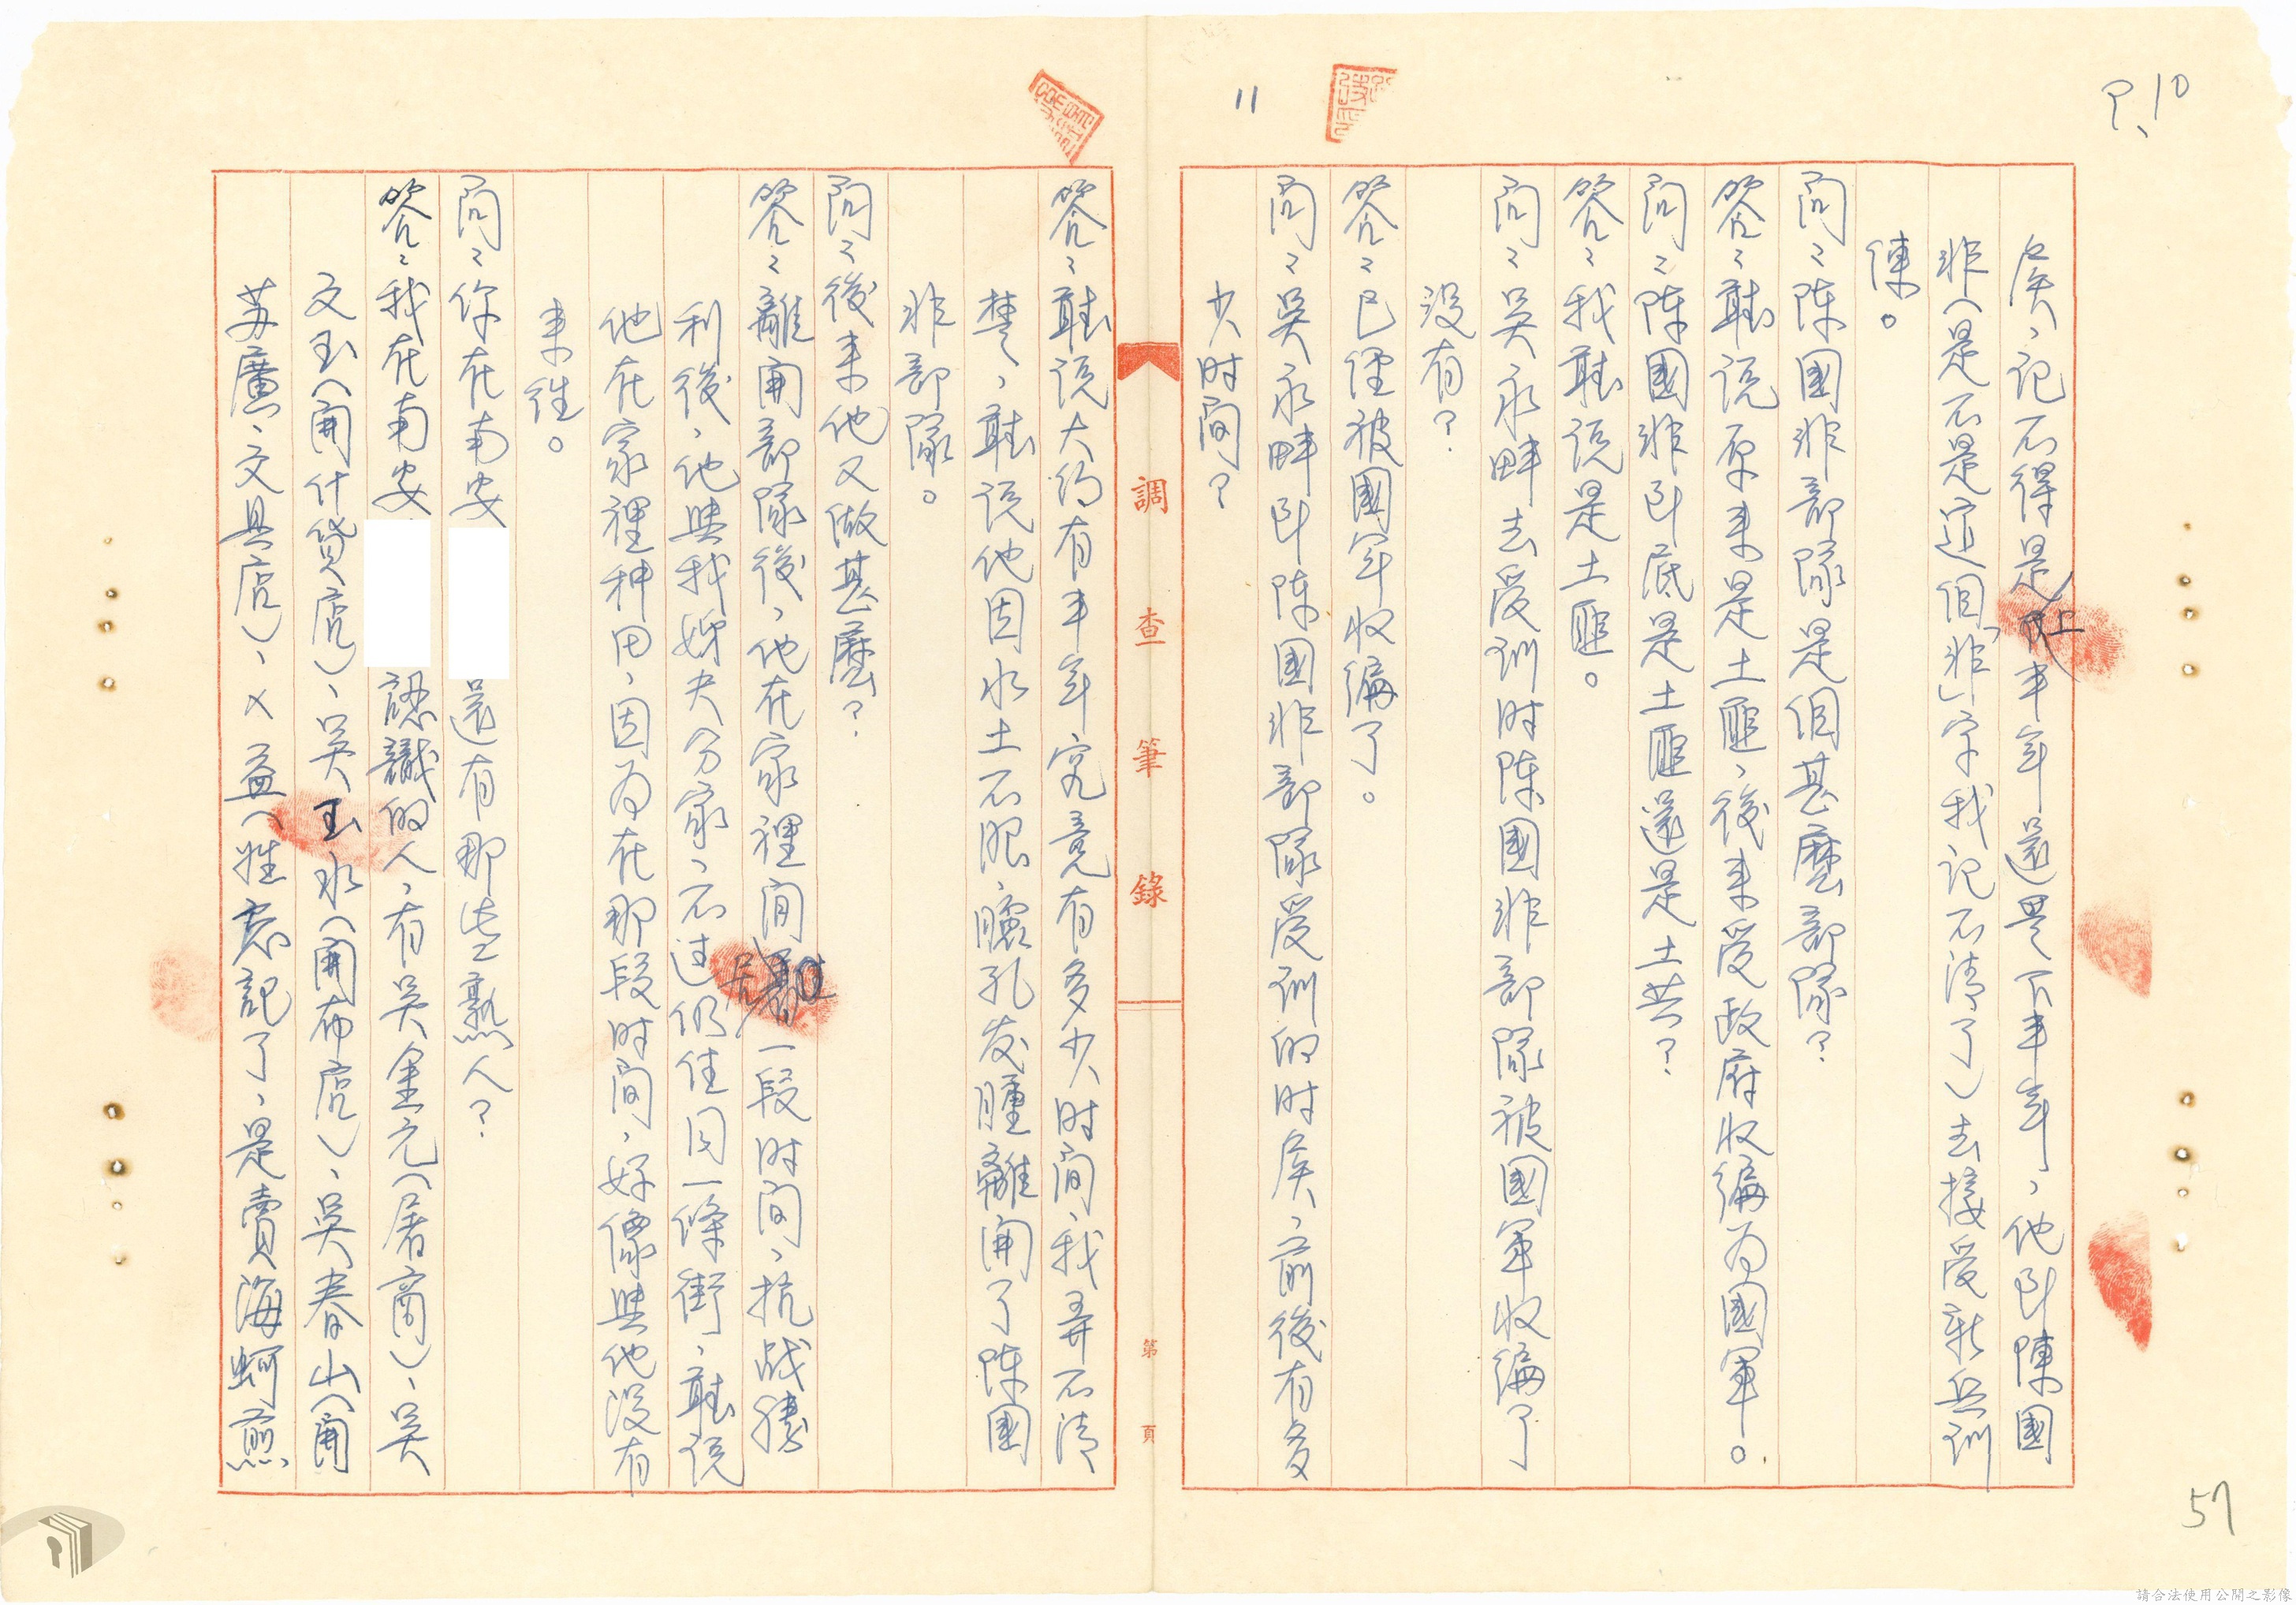 P.10
11
侯，記不得是上半年還是下半年，他到陳國
非（是不是這個「非」字我記不清了）去接受新兵訓
練。
問：陈國非部隊是個甚麼部隊？
答：聽说原来是土匪，後来受政府收编为國軍。
問：陈國非到底是土匪還是土共？
答：我聽说是土匪。
問：吳永畔去受训时陈國非部隊被國軍收编了
没有？
答：已經被國军收编了。
問：吳永畔到陈國非部隊受训的时侯，前後有多
少时間？
調查筆錄
第 頁
答：聽说大约有半年究竟有多少时間，我弄不清
楚，聽说他因水土不服，臉孔发腫離開了陈國
非部隊。
問：後来他又做甚麼？
答：離開部隊後，他在家裡閒居一段时間，抗战勝
利後，他與我姊夫分家，不过仍住同一條街，聽说
他在家裡种田，因为在那段时間，好像與他没有
来往。
問：你在南安 還有那些熟人？
答：我在南安 認識的人，有吳金元（屠商）、吳
文玉（開什貨店）、吳玉水（開布店）、吳春山（開
苏廣、文具店）、×益（姓忘記了，是賣海蚵煎
57
請合法使用公開之影像